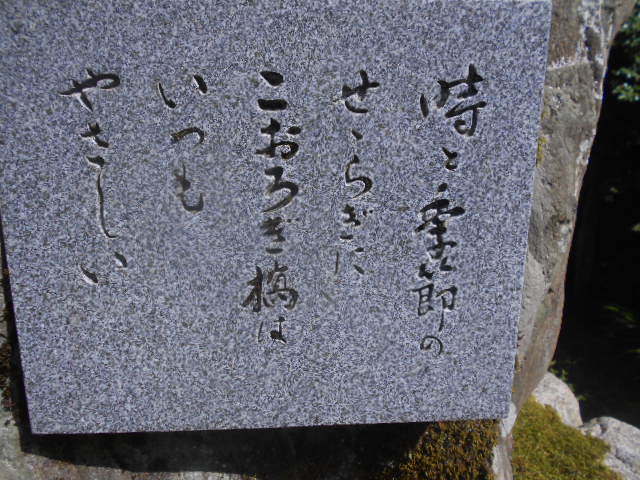 時と季節の
せゝらぎに
こおろぎ橋は
いつも
やさしい